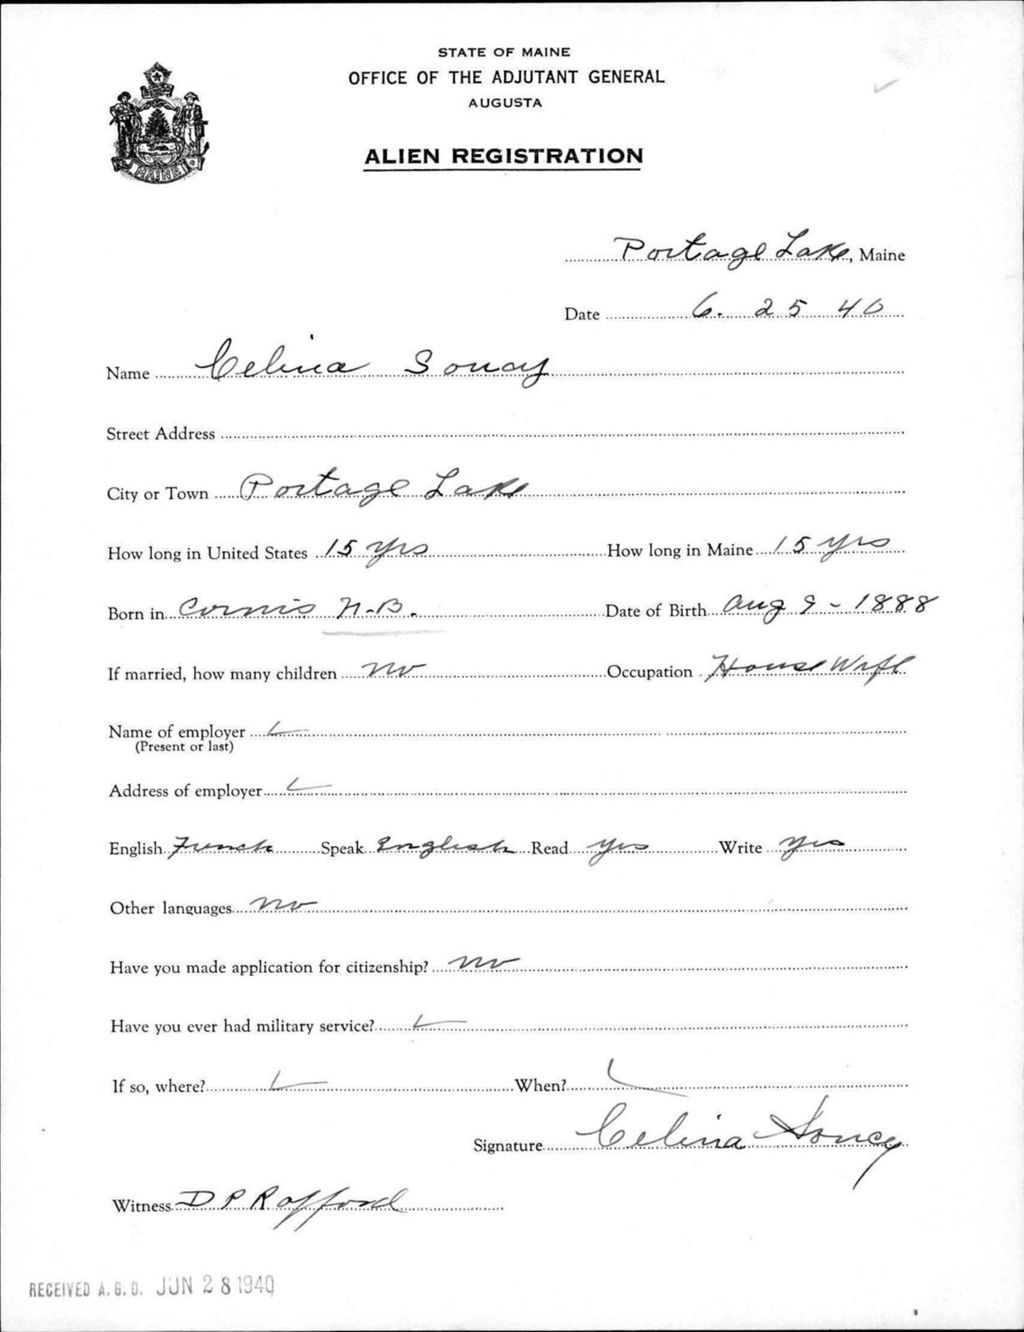 STATE OF MAINE
OFFICE OF THE ADJUTANT GENERAL
AUGUSTA
ALIEN REGISTRATION
MAINE
Portage Lake, Maine
Date 6. 25 40
Name Celina Soucy
Street Address
City or Town Portage Lake
How long in United States 15 yrs How long in Maine 15 yrs
Born in Cornis N-B. Date of Birth Aug 9 - 1888
If married, how many children no Occupation House Wife
Name of employer
(Present or last)
Address of employer
English French Speak English Read yes Write yes
Other languages no
Have you made application for citizenship? no
Have you ever had military service?
If so, where? When?
Signature Celina Soucy
Witness D P Rafford
RECEIVED A. G. O. JUN 28 1940